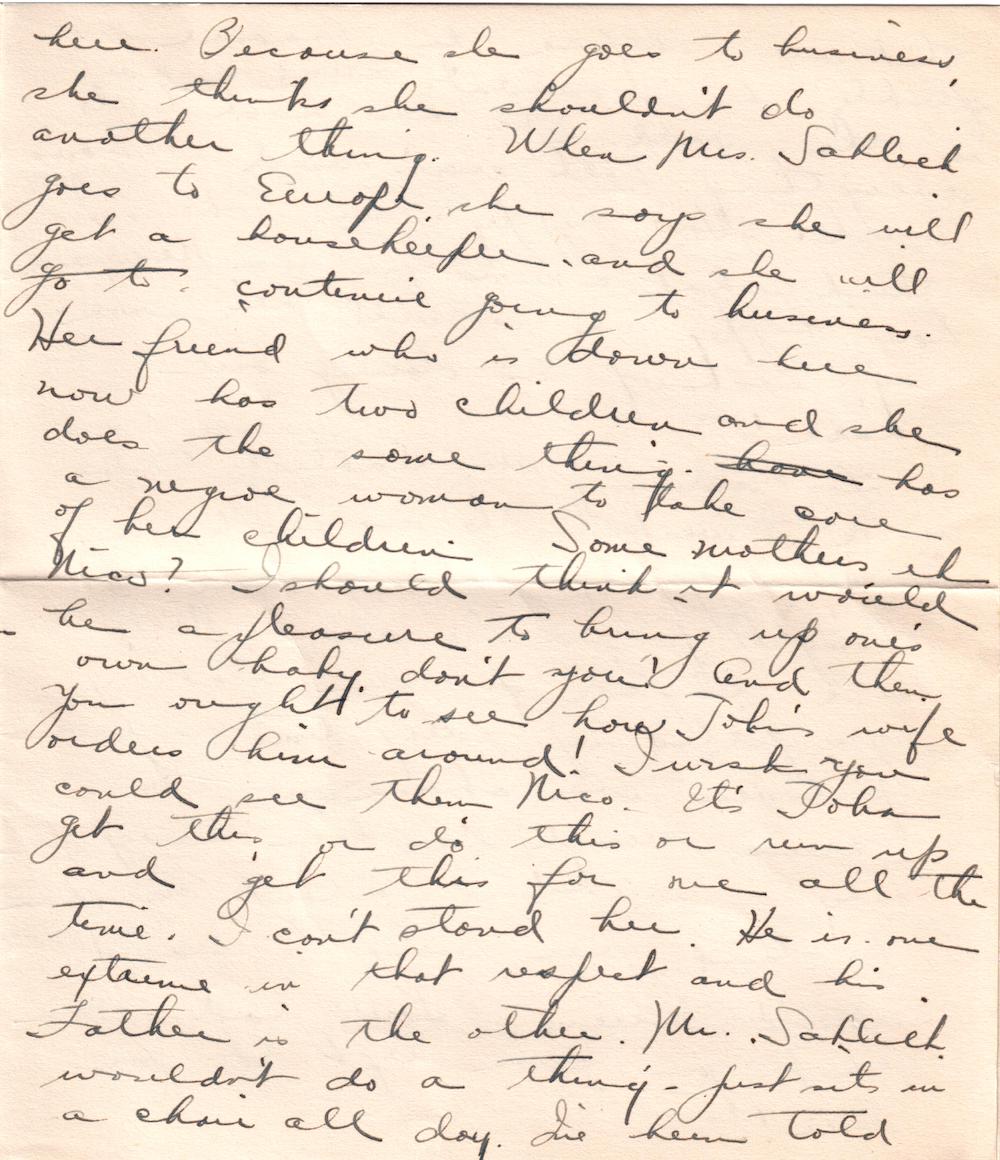 here. Because she goes to business,
she thinks she shouldn't do
another thing. When Mrs. Sahlich
goes to Europe, she says she will
get a housekeeper and she will
go to continue going to business.
Her friend who is down here
now has two children and she
does the same thing. have has
a negroe woman to take care
of her children Some mothers eh
Nico? I should think it would
be a pleasure to bring up one's
own baby don't you? And then
you ought to see how John's wife
orders him around! I wish you
could see them Nico. It's John
get this or do this or run up
and get this for me all the
time. I can't stand her. He is one
extreme in that respect and his
Father is the other. Mr. Sahlich
wouldn't do a thing - just sits in
a chair all day. I've been told